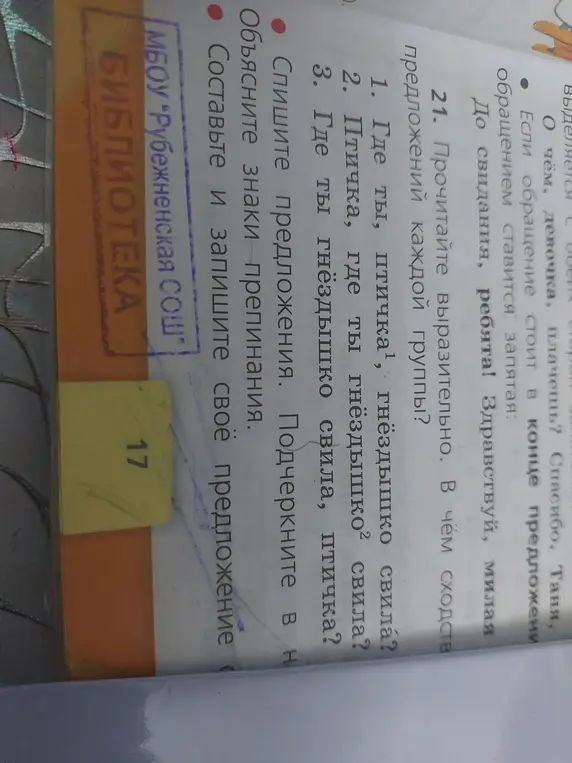 выделяется с обеих сторон
О чём, девочка, плачешь? Спасибо, Таня,
• Если обращение стоит в конце предложени
обращением ставится запятая:
До свидания, ребята! Здравствуй, милая
21. Прочитайте выразительно. В чём сходств
предложений каждой группы?
1. Где ты, птичка¹, гнёздышко свила́?
2. Птичка, где ты гнёздышко² свила?
3. Где ты гнёздышко свила, птичка?
• Спишите предложения. Подчеркните в н
Объясните знаки препинания.
• Составьте и запишите своё предложение с
17
МБОУ "Рубежненская СОШ"
БИБЛИОТЕКА